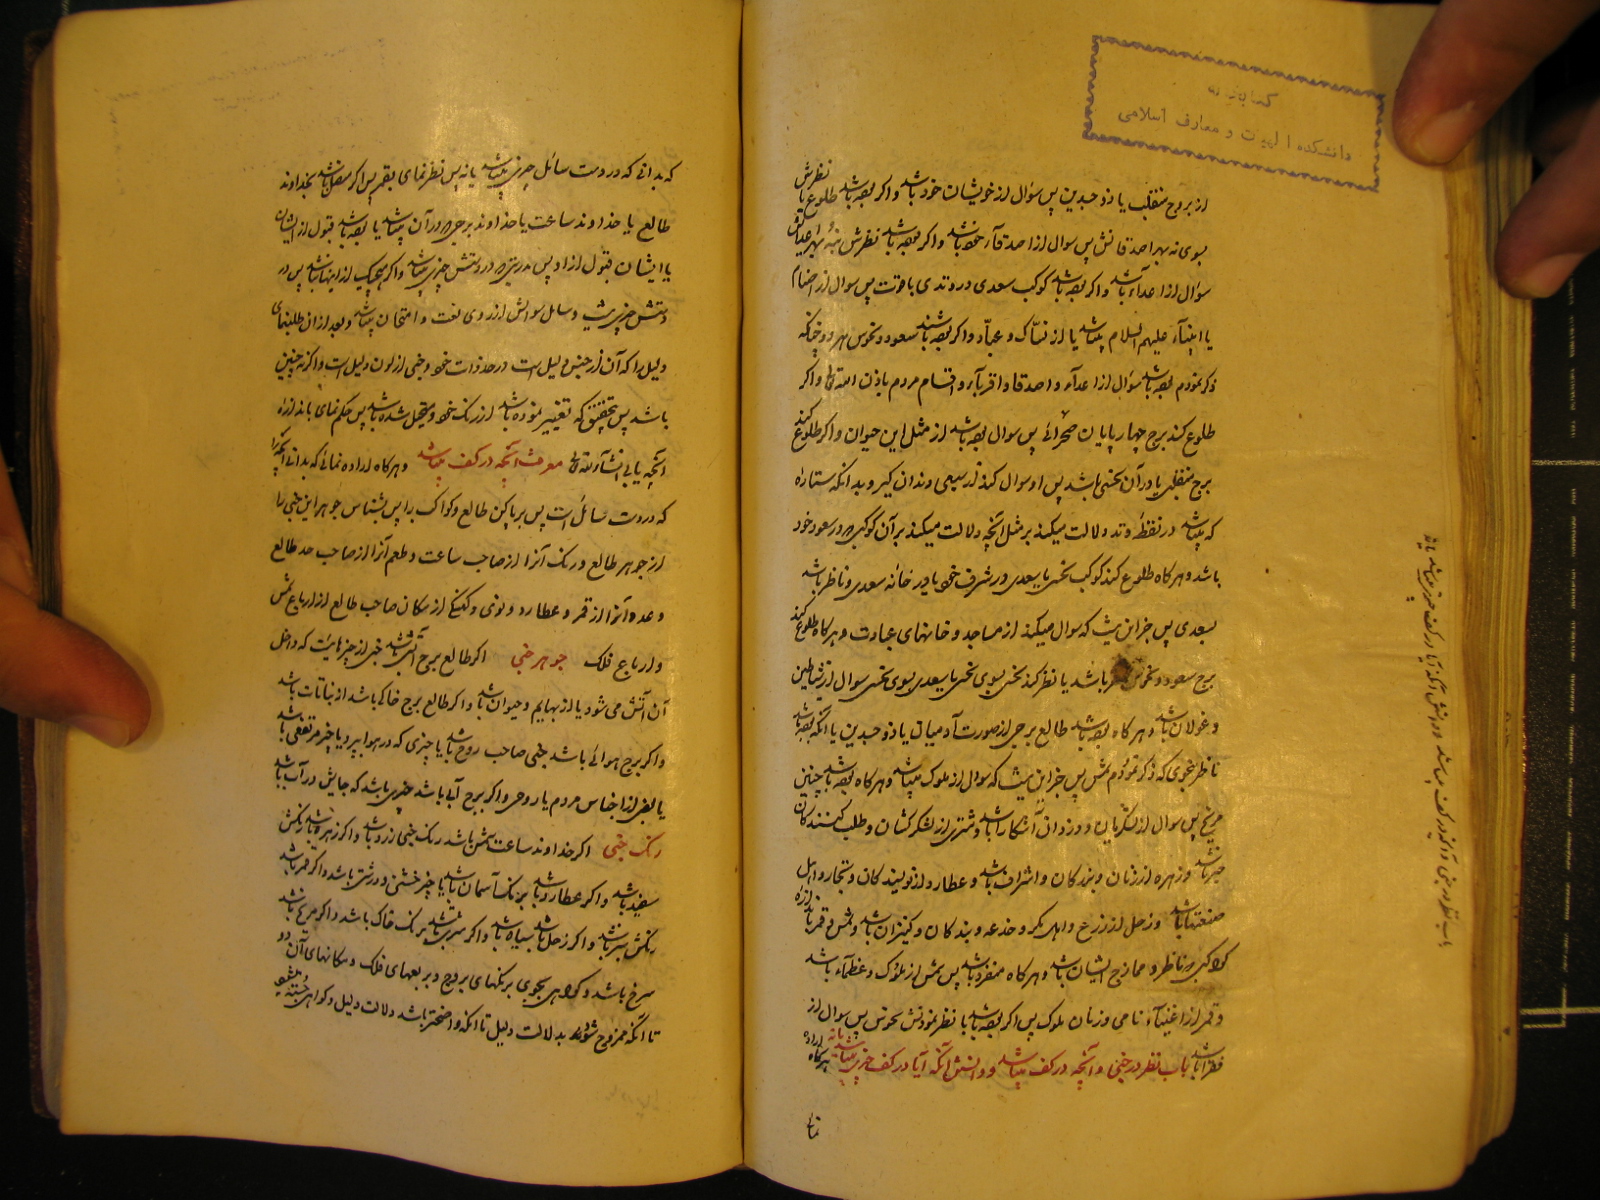 کتابخانه
دانشکده الهیات و معارف اسلامی
از بروج منقلب یا ذو جسدین پس سؤال از خویشان خود باشد و اگر بوده باشد طلوع با نظرش
بسوی نه بهر اصدقائش پس سوال از اصدقاء خود باشد و اگر بوده باشد نظرش
سؤال از اعداء باشد و اگر بوده باشد کوکب سعدی در وتدی با قوت پس سوال از اصنام
یا انبیاء علیهم السلام میباشد یا از نساک و عباد و اگر بوده باشند سعود و نحوس بهر دو چنانکه
ذکر نمودم بوده باشد سؤال از اعداء و اصدقا و اقرباء و اقسام مردم باذن الله تعالی و اگر
طلوع کند برج چهارپایان صحرائی پس سوال بوده باشد از مثل این حیوان و اگر طلوع کند
برج منقلب یا در آن نحسی باشد پس او سوال کند از سبعی دندان گیر و بدانکه ستاره
که میباشد در نقطهٔ وتد دلالت میکند بر مثل آنچه دلالت میکند بر آن کوکب در سعود خود
باشد و هرگاه طلوع کند کوکب نحس یا سعدی در شرف خود یا در خانه سعدی و ناظر باشد
بسعدی پس جز این نیست که سوال میکند از مساجد و خانهای عبادت و هرگاه طلوع کند
برج سعود و نحوس باشد یا نظر کند نحس بسوی نحس یا سعدی بسوی نحس سوال از شیاطین
و غولان باشد و هرگاه بوده باشد طالع برجی از صورت آدمیان یا ذو جسدین یا آنکه بوده باشد
ناظر بنحوی که ذکر نمودم شمس پس جز این نیست که سوال از ملوک میباشد و هرگاه بوده باشد چنین
مریخ پس سوال از لشگریان و دزدان آشکارا باشد و مشتری از لشکرکشان و طلب کنندگان
خبر باشد و زهره از زنان و بزرگان و اشراف باشد و عطارد از نویسندکان و تجار و اهل
صنعتها باشد و زحل از زرع و اهل مکر و خدعه و بندکان و کنیزان باشد و شمس و قمر باشد
کواکبی ناظر و ممازج ایشان باشد و هرگاه منفرد باشد پس شمس از ملوک و عظماء باشد
و قمر از اغنیاء نامی و زنان ملوک پس اگر بوده باشد با نظر نمودنش نحوس پس سوال از
فقرا باشد باب نظر در خبی و آنچه در کف میباشد و دانستن آنکه آیا در کف چیزی میباشد یا نه هرگاه اراده
نمائی
باب نظر در خبی و آنچه در کف میباشد و دانستن آنکه آیا در کف چیزی میباشد یا نه
که بدانی که در دست سائل چیزی میباشد یا نه پس نظر نمای بقمر پس اگر متصل باشد بخداوند
طالع یا خداوند ساعت یا خداوند برجی در آن میباشد یا بوده باشد قبول از ایشان
یا ایشان قبول از او پس بدرستی در دستش چیزی میباشد و اگر هیچیک از اینها نباشد پس در
دستش چیزی نیست و سایل سوالش از روی تعنت و امتحان میباشد و بعد از آن طلب نمای
دلیل را که آن از جنس دلیل است در حد ذات خود و خبی از لون دلیل است و اگر نه چنین
باشد پس بتحقیق که تغییر نموده باشد از رنک خود و مستحیل شده باشد پس حکم نمای بانه از راه
آنچه یابی انشاء الله تعالی معرفت آنچه در کف میباشد و هرگاه اراده نمائی که بدانی آنچه را
که در دست سائل است پس برپا کن طالع و کواکب را پس بشناس جوهر این خبی را
از جوهر طالع و رنک آنرا از صاحب ساعت و طعم آنرا از صاحب حد طالع
و عدد آنرا از قمر و عطارد و نوی و کهنکی از مکان صاحب طالع از ارباع شمس
و ارباع فلک جوهر خبی اگر طالع برج آتشی باشد خبی از چیزهائیست که داخل
آن آتش می شود یا از بهایم و حیوان باشد و اگر طالع برج خاکی باشد از نباتات باشد
و اگر برج هوائی باشد خبی صاحب روح باشد یا چیزی که در هوا بپرد یا چیز مرتفعی باشد
یا بعض از اجناس مردم یا روحی و اگر برج آبی باشد چیزی باشد که جایش در آب باشد
رنک خبی اگر خداوند ساعت شمس باشد رنک خبی زرد باشد و اگر زهره باشد رنکش
سفید باشد و اگر عطارد باشد برنک آسمان باشد یا چیز خشنی و درشتی باشد و اگر قمر باشد
رنکش سبز باشد و اگر زحل باشد سیاه باشد و اگر مشتری باشد برنک خاک باشد و اگر مریخ باشد
سرخ باشد و کواهی بجوی برنکهای بروج و بربعهای فلک و مکانهای آن دو
تا آنکه ممزوج شود بدلالت دلیل تا آنکه واضحتر باشد دلالت دلیل و کواهی